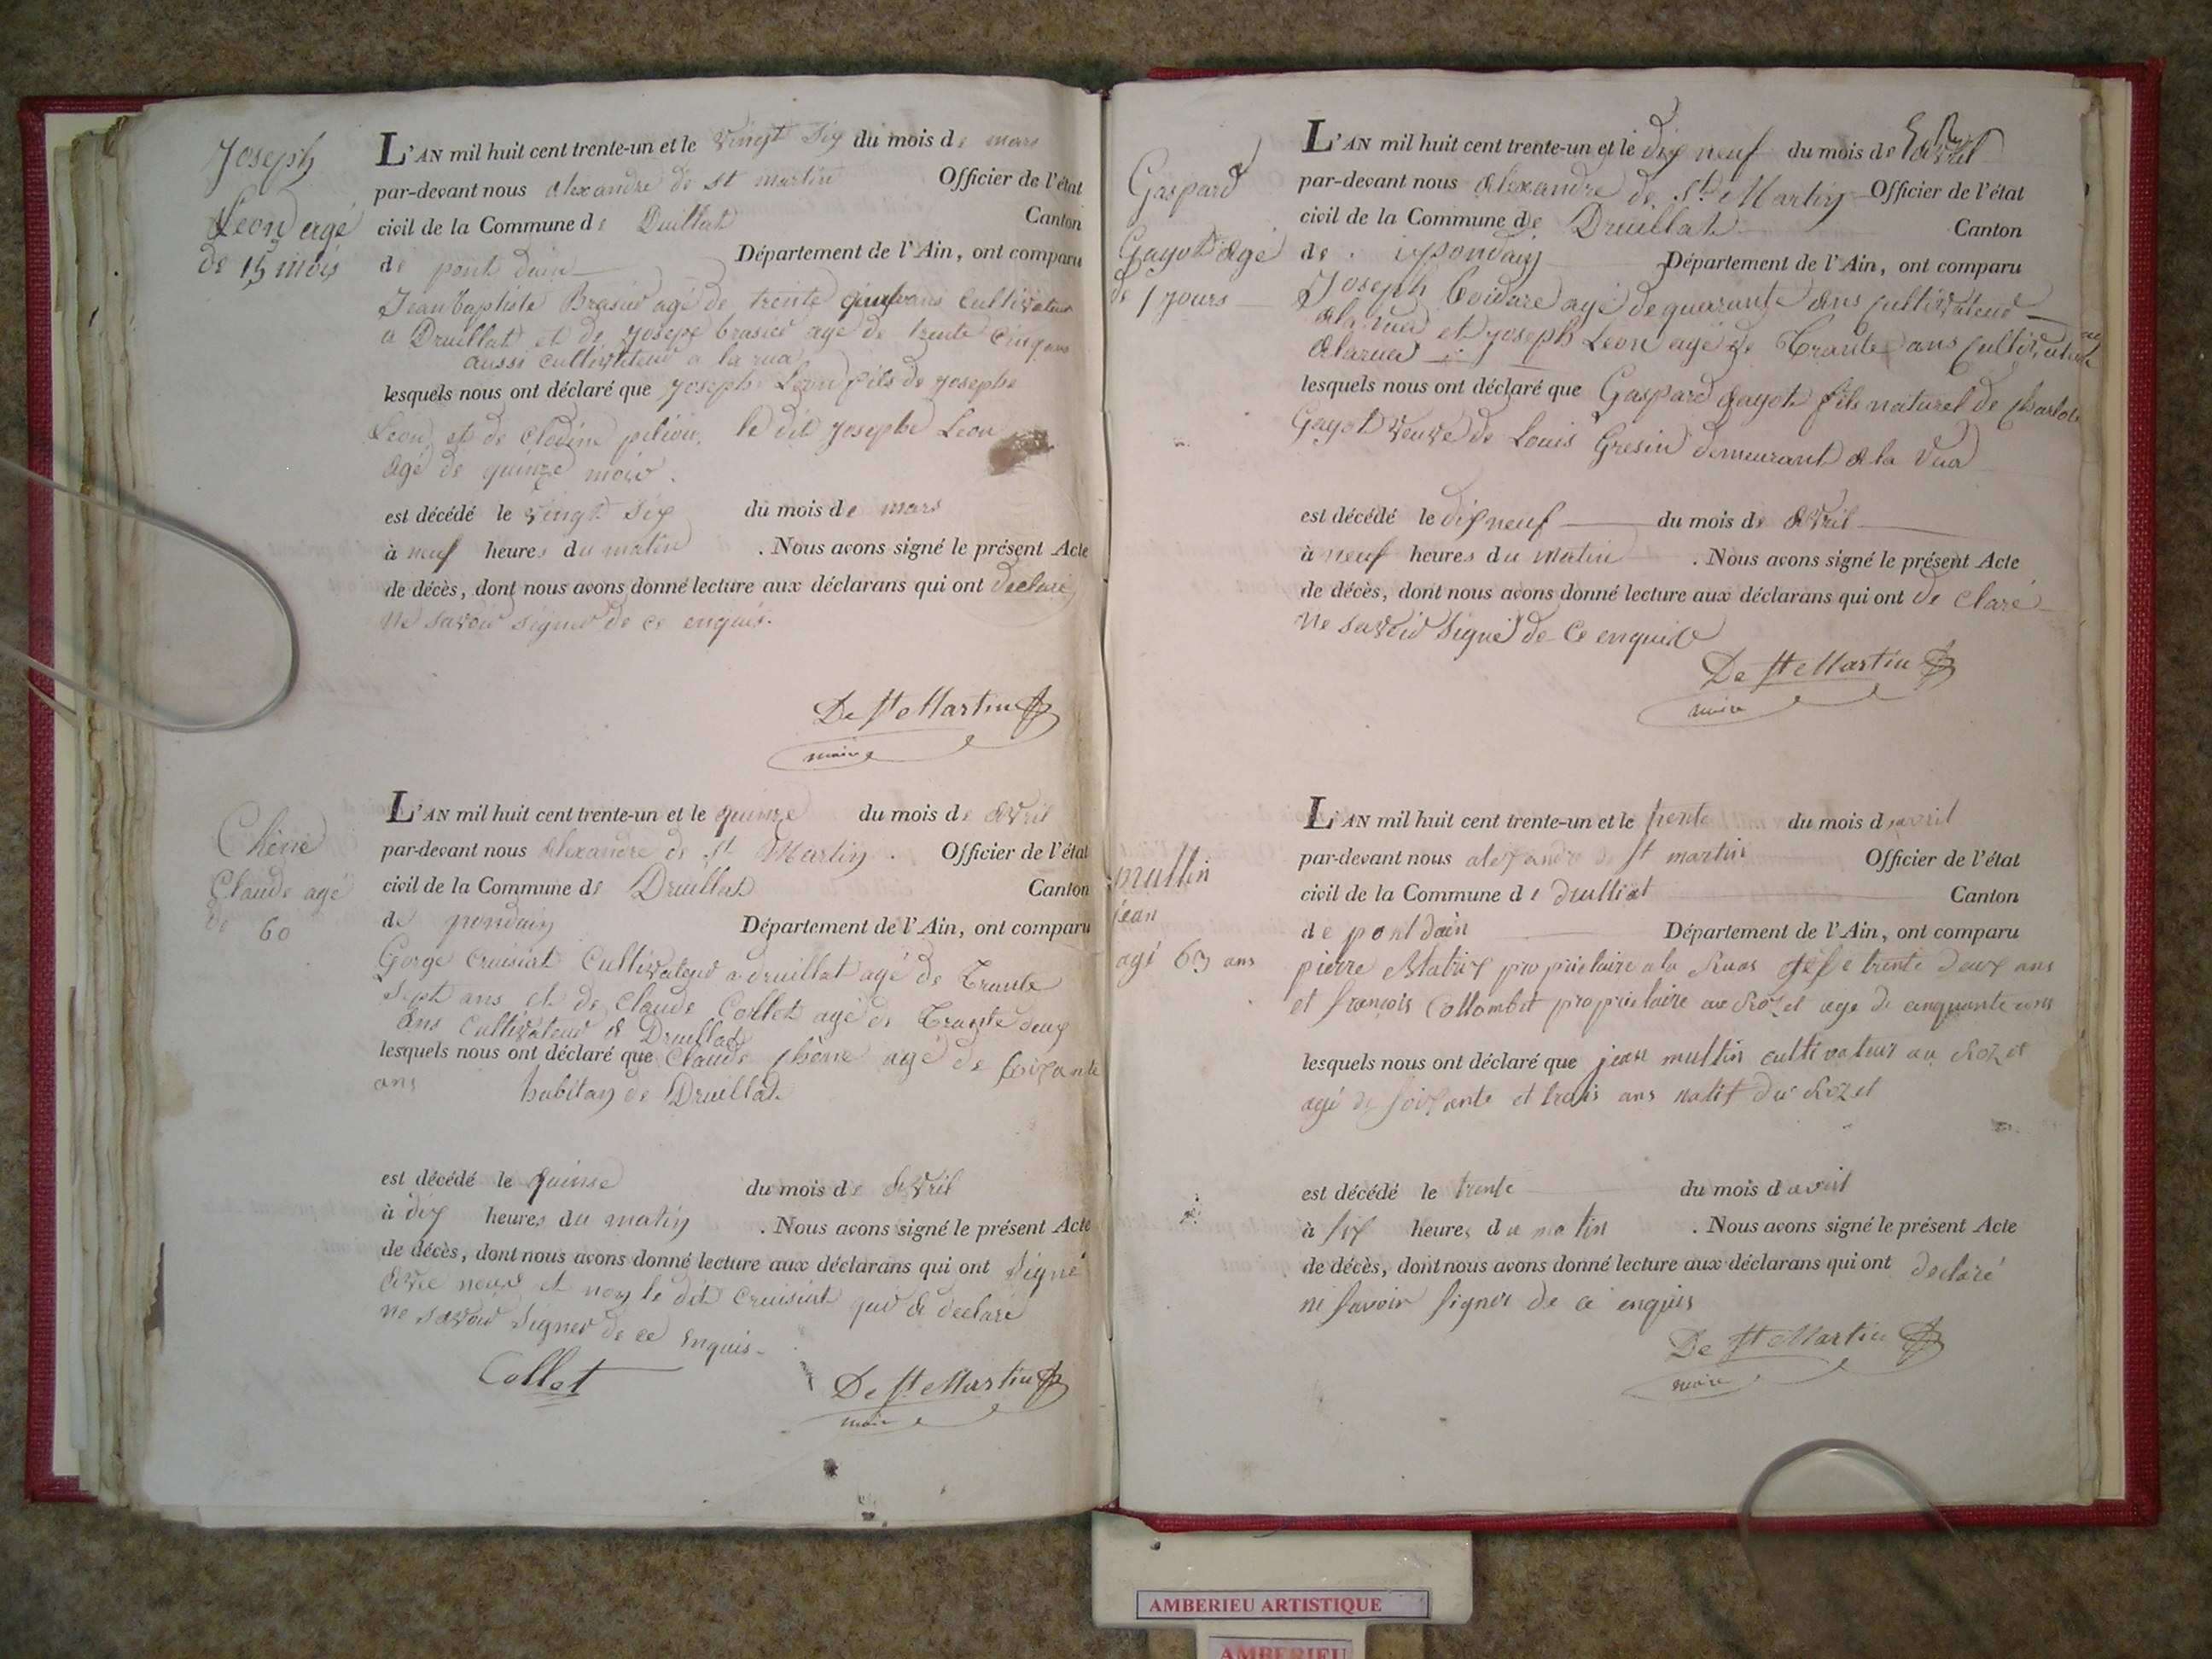 Joseph
Leon agé
de 15 mois
L'AN mil huit cent trente-un et le vingt six du mois de mars
par-devant nous alexandre de st martin Officier de l'état
civil de la Commune de Druillat Canton
de pont dain Département de l'Ain, ont comparu
Jean baptiste Brasier agé de trente ans Cultivateur
a Druillat et de Josepe brasier agé de trente cinq ans
aussi cultivateur a la rua
lesquels nous ont déclaré que Joseph Leon fils de Josephe
Leon et de Clodine le dit Josephe Leon
agé de quinze mois.
est décédé le vingt six du mois de mars
à neuf heures du matin . Nous avons signé le présent Acte
de décès, dont nous avons donné lecture aux déclarans qui ont declaré
ne savoir signer de ce enquis.
De St Martin
maire
Chêne
Claude agé
de 60
L'AN mil huit cent trente-un et le quinze du mois de avril
par-devant nous alexandre de st Martin . Officier de l'état
civil de la Commune de Druillat Canton
de pondain Département de l'Ain, ont comparu
Gorge Cruisiat Cultivateur a druillat agé de trante
sept ans et de Claude Collet agé de trante deux
ans Cultivateur a Druillat
lesquels nous ont déclaré que Claude chêne agé de soixante
ans habitan de Druillat
est décédé le quinse du mois de avril
à dix heures du matin . Nous avons signé le présent Acte
de décès, dont nous avons donné lecture aux déclarans qui ont signé
avec nous et non le dit Cruisiat qui a declaré
ne savoir signer de ce enquis
Collet
De St Martin
maire
Gaspard
Gayot agé
de 1 jours
L'AN mil huit cent trente-un et le dix neuf du mois de avril
par-devant nous alexandre de St Martin Officier de l'état
civil de la Commune de Druillat Canton
de pondain Département de l'Ain, ont comparu
Joseph agé de quarante ans cultivateur
a la rua et joseph Leon agé de trante ans cultivateur
a la rua
lesquels nous ont déclaré que Gaspard gayot fils naturel de
Gayot veuve de Louis Gresin demeurant a la rua
est décédé le dix neuf du mois de avril
à neuf heures du matin . Nous avons signé le présent Acte
de décès, dont nous avons donné lecture aux déclarans qui ont de claré
ne savoir signé de ce enquis
De St Martin
maire
mullin
jean
agé 63 ans
L'AN mil huit cent trente-un et le trente du mois d avril
par-devant nous alexandre de st martin Officier de l'état
civil de la Commune de druillat Canton
de pont dain Département de l'Ain, ont comparu
pierre proprietaire a la Ruas trente deux ans
et françois Collombet proprietaire au Rozet age de cinquante ans
lesquels nous ont déclaré que jean mullin cultivateur au Rozet
agé de soixante et trois ans natif du Rozet
est décédé le trente du mois d avril
à six heures du matin . Nous avons signé le présent Acte
de décès, dont nous avons donné lecture aux déclarans qui ont declaré
ne savoir signer de ce enquis
De St Martin
maire
AMBERIEU ARTISTIQUE
AMBERIEU